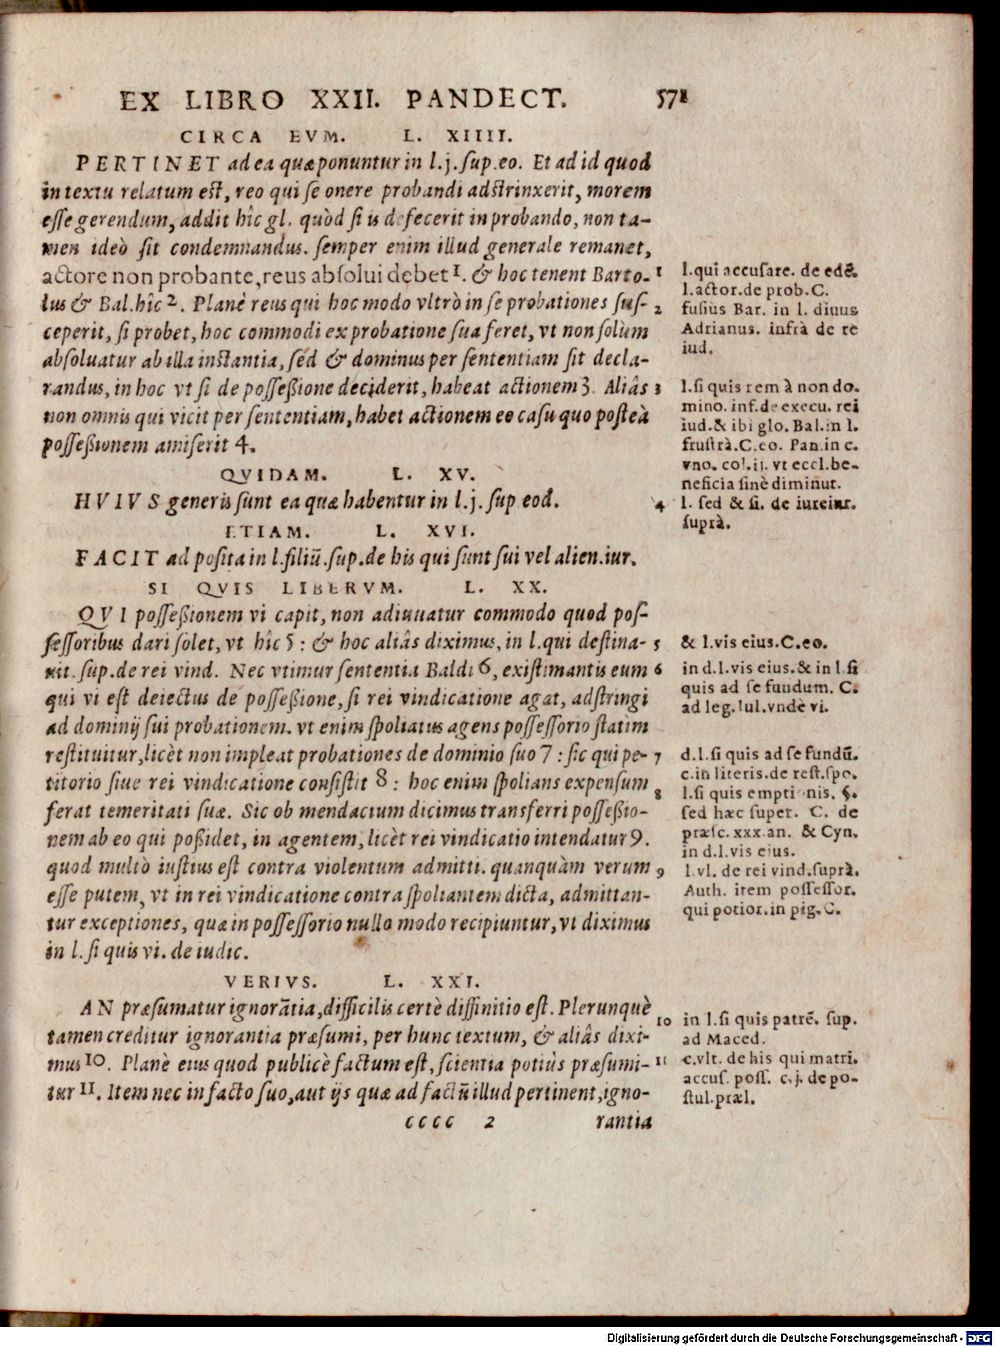 EX LIBRO XXII. PANDECT. 571
CIRCA EVM. L. XIIII.
PERTINET ad ea quæ ponuntur in l.j. sup.eo. Et ad id quod
in textu relatum est, reo qui se onere probandi adstrinxerit, morem
esse gerendum, addit hîc gl. quòd si is defecerit in probando, non ta-
men ideò sit condemnandus. semper enim illud generale remanet,
actore non probante, reus absolui debet 1. & hoc tenent Barto-
lus & Bal.hîc 2. Planè reus qui hoc modo vltrò in se probationes sus-
ceperit, si probet, hoc commodi ex probatione sua feret, vt non solum
absoluatur ab illa instantia, sed & dominus per sententiam sit decla-
randus, in hoc vt si de possessione deciderit, habeat actionem 3. Aliâs
non omnis qui vicit per sententiam, habet actionem eo casu quo posteà
possessionem amiserit 4.
QVIDAM. L. XV.
HVIVS generis sunt ea quæ habentur in l.j. sup eod.
ETIAM. L. XVI.
FACIT ad posita in l.filiũ.sup.de his qui sunt sui vel alien.iur.
SI QVIS LIBERVM. L. XX.
QVI possessionem vi capit, non adiuuatur commodo quod pos-
sessoribus dari solet, vt hîc 5: & hoc aliâs diximus, in l.qui destina-
uit.sup.de rei vind. Nec vtimur sententia Baldi 6, existimantis eum
qui vi est deiectus de possessione, si rei vindicatione agat, adstringi
ad dominij sui probationem. vt enim spoliatus agens possessorio statim
restituitur, licèt non impleat probationes de dominio suo 7: sic qui pe-
titorio siue rei vindicatione consistit 8: hoc enim spolians expensum
ferat temeritati suæ. Sic ob mendacium dicimus transferri possessio-
nem ab eo qui possidet, in agentem, licèt rei vindicatio intendatur 9.
quod multò iustius est contra violentum admitti. quanquàm verum
esse putem, vt in rei vindicatione contra spoliantem dicta, admittan-
tur exceptiones, quæ in possessorio nullo modo recipiuntur, vt diximus
in l.si quis vi. de iudic.
VERIVS. L. XXI.
AN præsumatur ignorãtia, difficilis certè diffinitio est. Plerunquè
tamen creditur ignorantia præsumi, per hunc textum, & aliâs dixi-
mus 10. Planè eius quod publicè factum est, scientia potiùs præsumi-
tur 11. Item nec in facto suo, aut ijs quæ ad factũ illud pertinent, igno-
cccc 2 rantia
1 l.qui accusare. de edẽ.
l.actor.de prob.C.
2 fusius Bar. in l. diuus
Adrianus. infrà de re
iud.
3 l.si quis rem à non do.
mino. inf.de execu. rei
iud.& ibi glo. Bal.in l.
frustrà.C.eo. Pan.in c.
vno. col.ij. vt eccl.be-
neficia sinè diminut.
4 l. sed & si. de iureiur.
suprà.
5 & l.vis eius.C.eo.
6 in d.l.vis eius.& in l.si
quis ad se fundum. C.
ad leg.Iul.vnde vi.
7 d.l.si quis ad se fundũ.
c.in literis.de rest.spo.
8 l.si quis emptionis. §.
sed hæc super. C. de
præsc. xxx.an. & Cyn.
in d.l.vis eius.
9 l.vl. de rei vind.suprà.
Auth. item possessor.
qui potior.in pig.C.
10 in l.si quis patrẽ. sup.
ad Maced.
11 c.vlt. de his qui matri.
accus. poss. c.j. de po-
stul.præl.
Digitalisierung gefördert durch die Deutsche Forschungsgemeinschaft - DFG